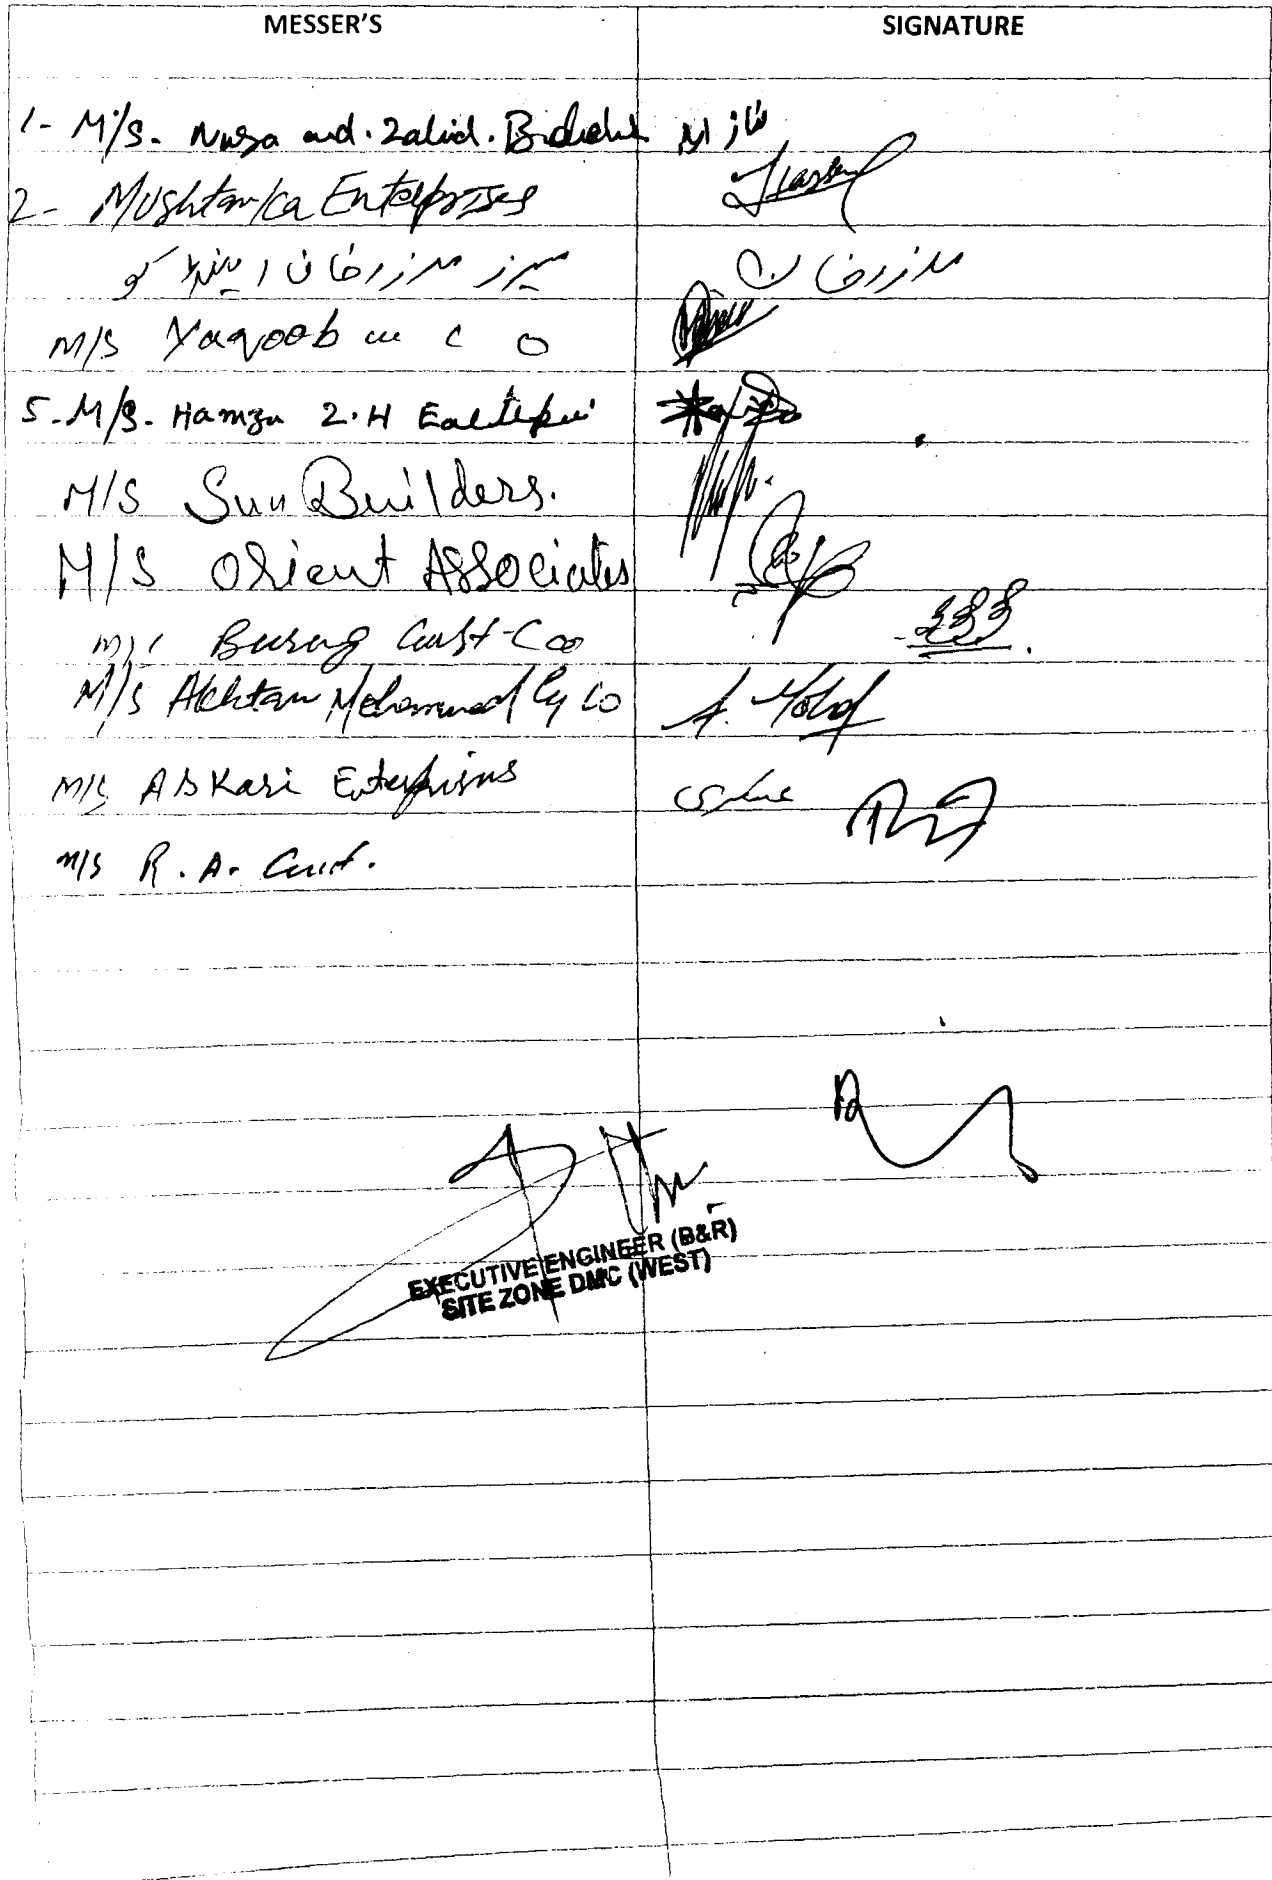 MESSER'S SIGNATURE
1- M/S. and. Zahid.
2- Mushtarka Enterprises
میسرز مدثر خان اینڈ کو مدثر خان
M/S Yaqoob C O
5. M/S. Hamza Z.H
M/S Sun Builders.
M/S Orient Associates
M/S Const-Co
M/S Akhtar Mohammad Co A. Mohd
M/S Askari Enterprises عسکری
M/S R. A. Const.
EXECUTIVE ENGINEER (B&R)
SITE ZONE DMC (WEST)